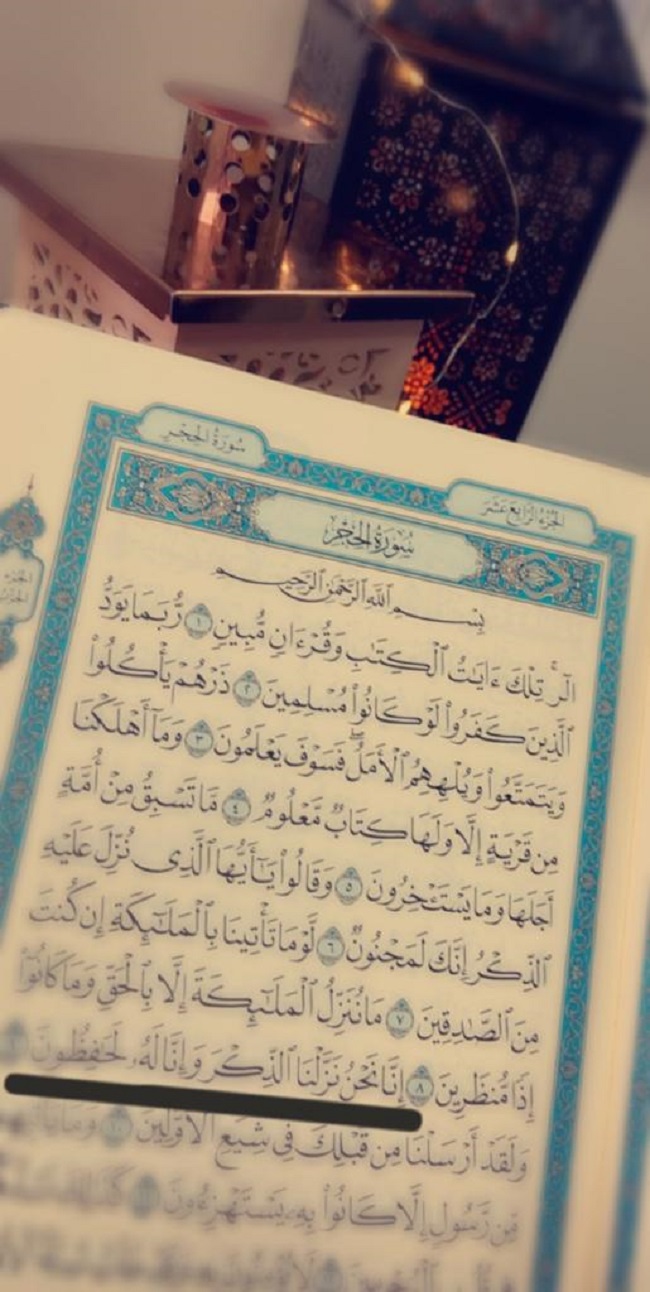 سُورَةُ الحِجْرِ
الجُزْءُ الرَّابِعَ عَشَرَ
سُورَةُ الحِجْرِ
بِسْمِ ٱللَّهِ ٱلرَّحْمَٰنِ ٱلرَّحِيمِ
الٓرۚ تِلْكَ ءَايَٰتُ ٱلْكِتَٰبِ وَقُرْءَانٍ مُّبِينٍ ١ رُّبَمَا يَوَدُّ
ٱلَّذِينَ كَفَرُوا۟ لَوْ كَانُوا۟ مُسْلِمِينَ ٢ ذَرْهُمْ يَأْكُلُوا۟
وَيَتَمَتَّعُوا۟ وَيُلْهِهِمُ ٱلْأَمَلُۖ فَسَوْفَ يَعْلَمُونَ ٣ وَمَآ أَهْلَكْنَا
مِن قَرْيَةٍ إِلَّا وَلَهَا كِتَابٌ مَّعْلُومٌ ٤ مَّا تَسْبِقُ مِنْ أُمَّةٍ
أَجَلَهَا وَمَا يَسْتَـْٔخِرُونَ ٥ وَقَالُوا۟ يَٰٓأَيُّهَا ٱلَّذِى نُزِّلَ عَلَيْهِ
ٱلذِّكْرُ إِنَّكَ لَمَجْنُونٌ ٦ لَّوْ مَا تَأْتِينَا بِٱلْمَلَٰٓئِكَةِ إِن كُنتَ
مِنَ ٱلصَّٰدِقِينَ ٧ مَا نُنَزِّلُ ٱلْمَلَٰٓئِكَةَ إِلَّا بِٱلْحَقِّ وَمَا كَانُوٓا۟
إِذًا مُّنظَرِينَ ٨ إِنَّا نَحْنُ نَزَّلْنَا ٱلذِّكْرَ وَإِنَّا لَهُۥ لَحَٰفِظُونَ
وَلَقَدْ أَرْسَلْنَا مِن قَبْلِكَ فِى شِيَعِ ٱلْأَوَّلِينَ ١٠ وَمَا يَأْتِيهِم
مِّن رَّسُولٍ إِلَّا كَانُوا۟ بِهِۦ يَسْتَهْزِءُونَ ١١ كَذَٰلِكَ